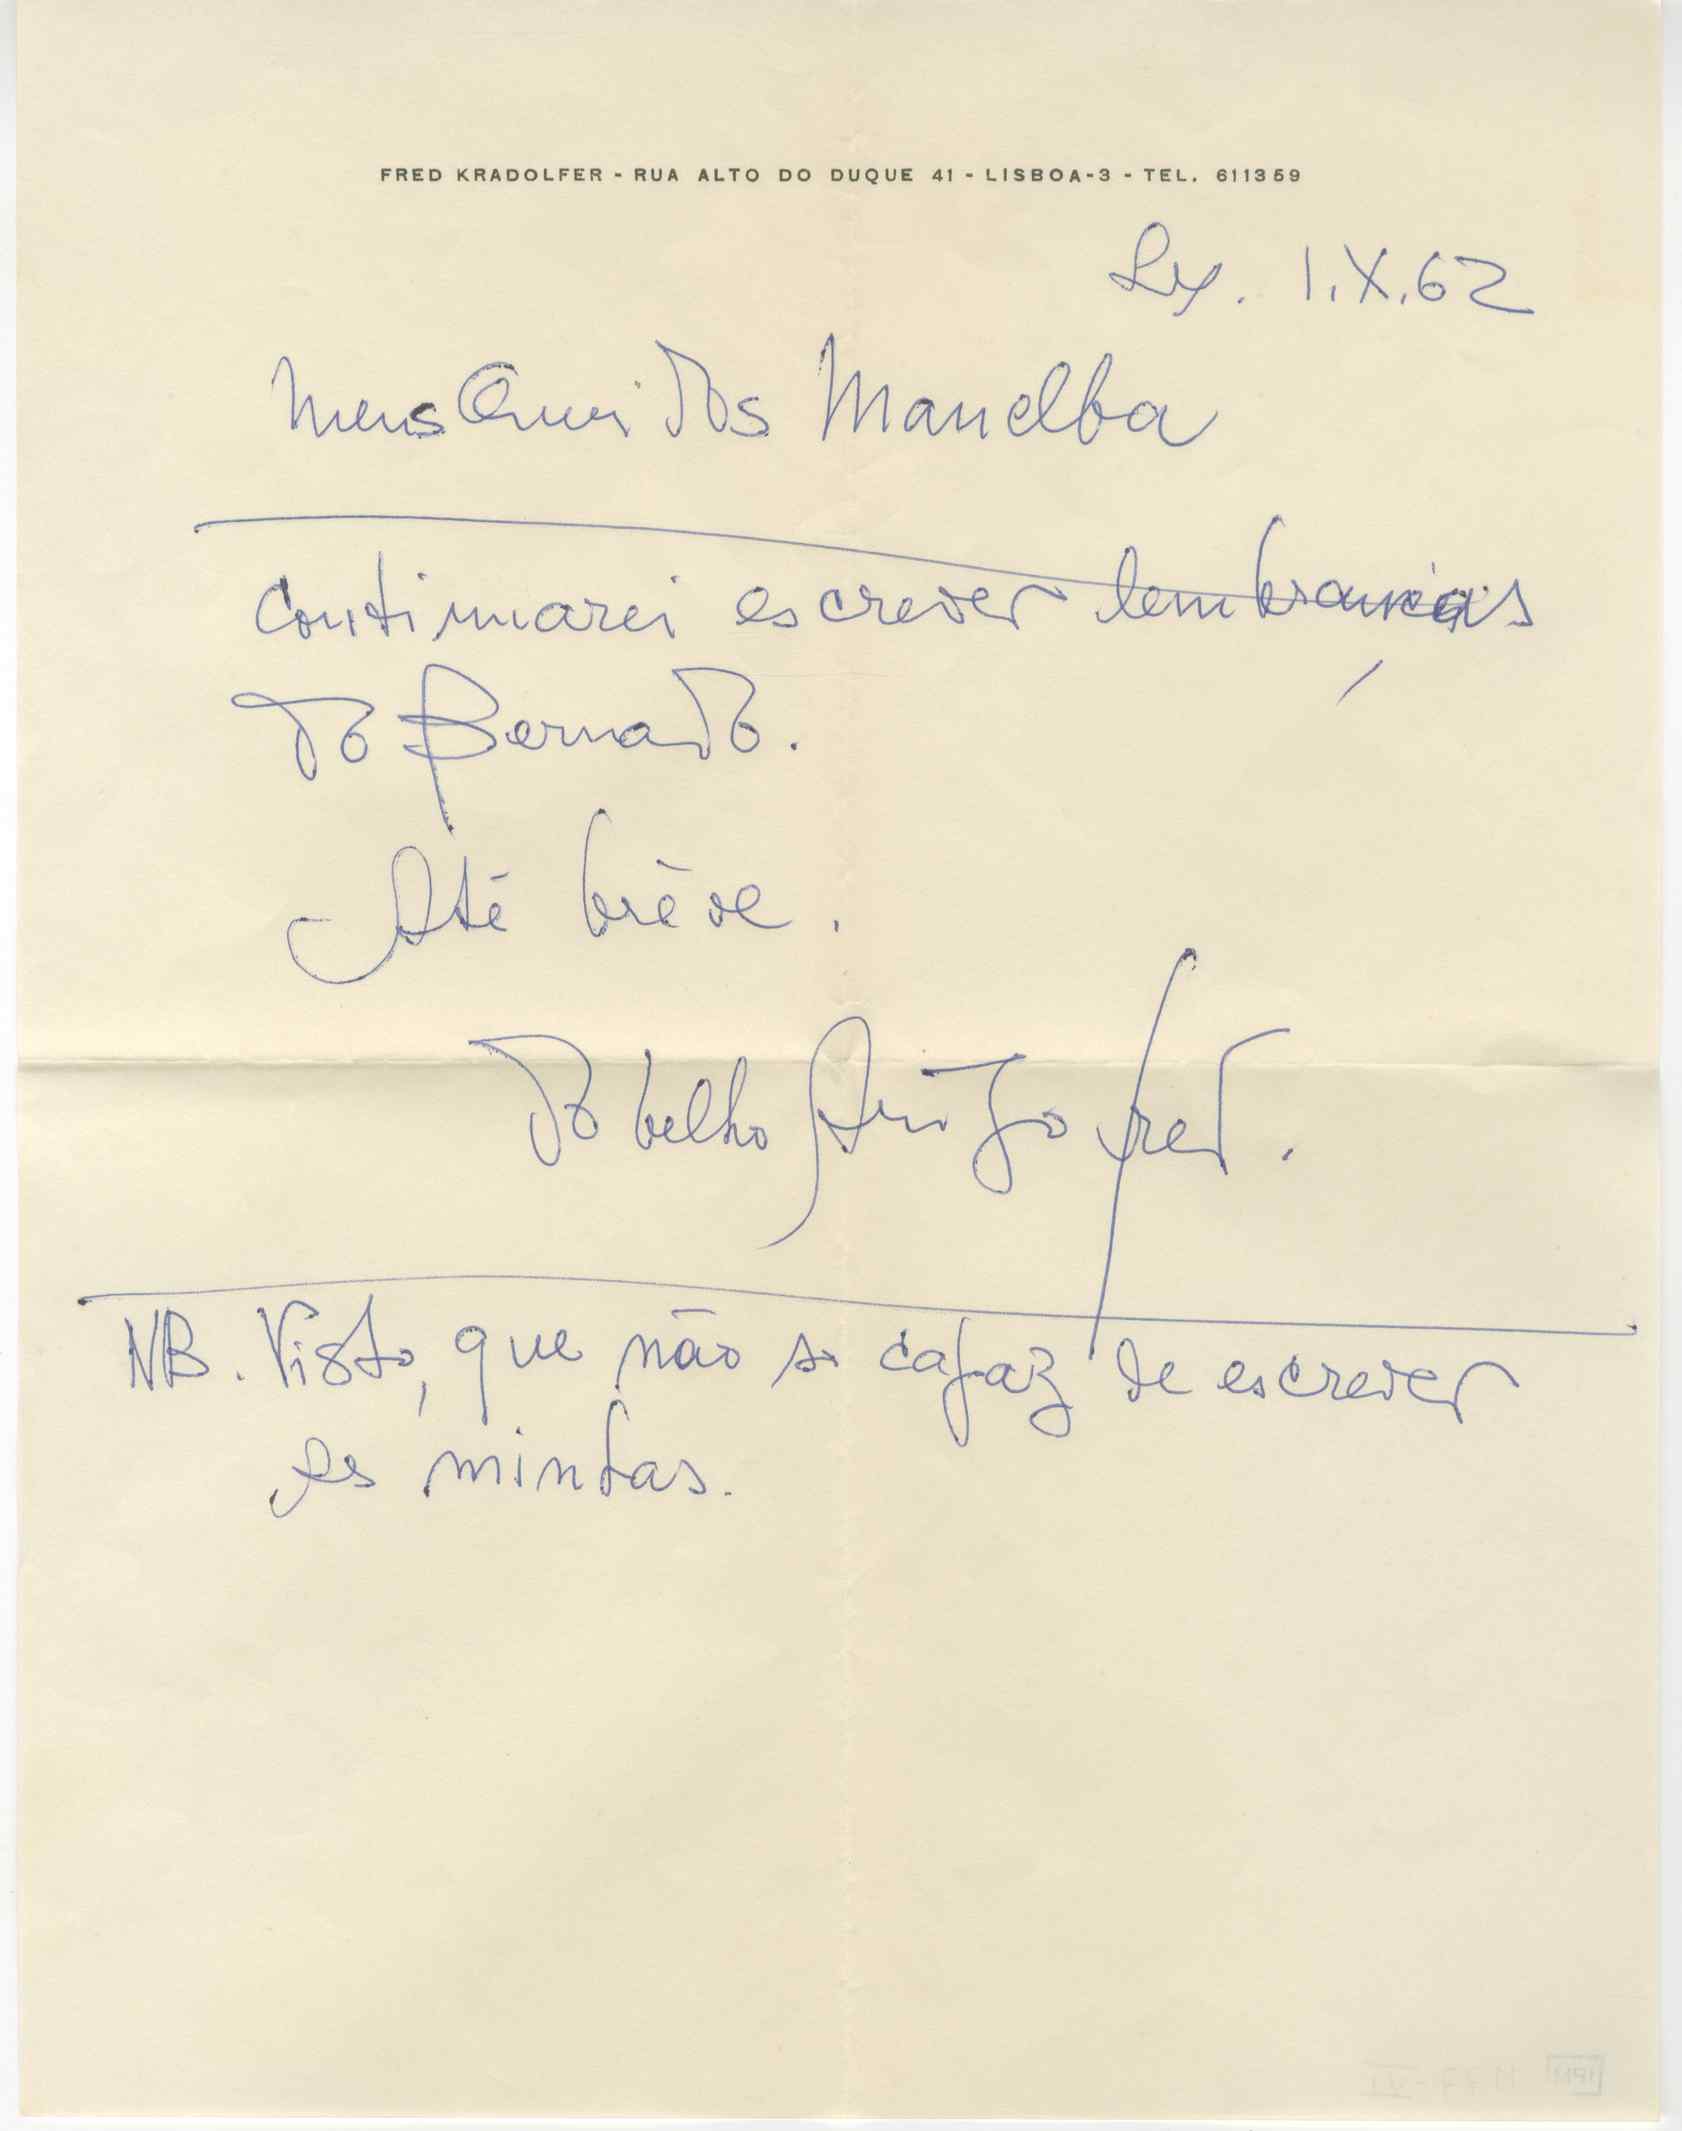 FRED KRADOLFER - RUA ALTO DO DUQUE 41 - LISBOA-3 - TEL. 611359
Lx. 1.X.62
Meus Queridos Manelba
Continuarei escrever lembranças
do Bernardo.
Até brève.
do belho Amigo Fred.
NB. Visto, que não so capaz de escrever
es minhas.